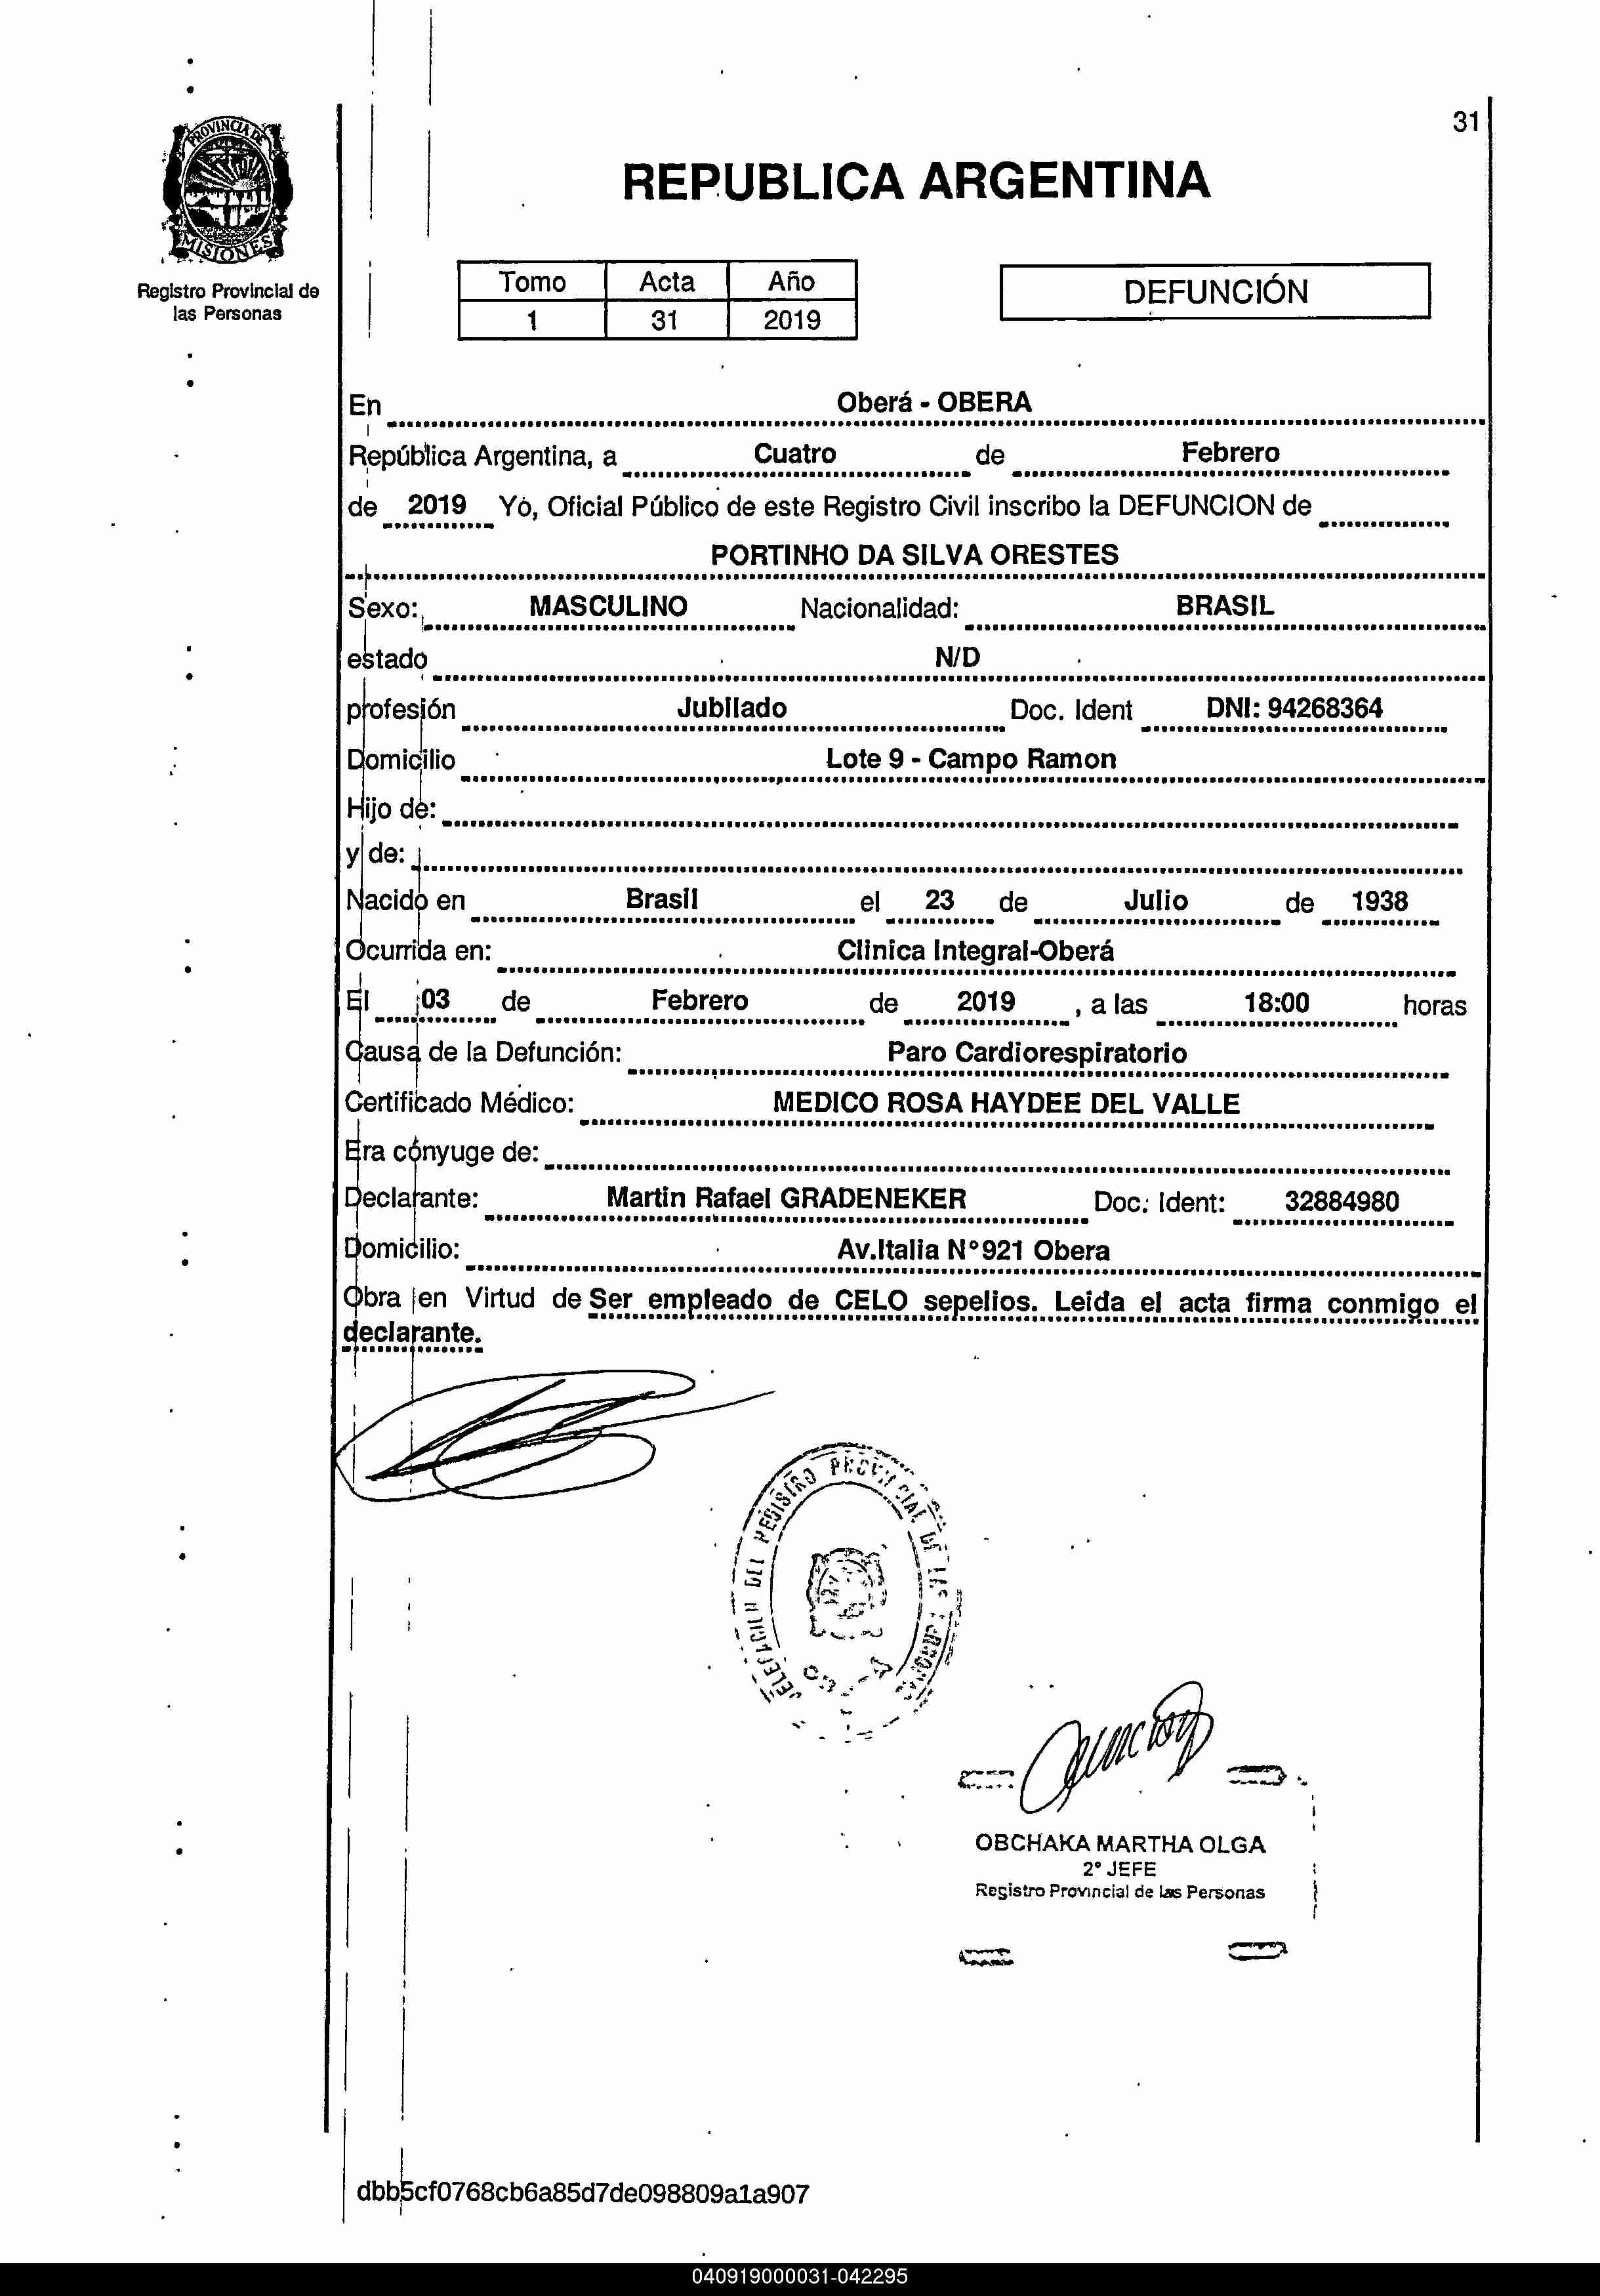 31
PROVINCIA DE
MISIONES
Registro Provincial de
las Personas
REPUBLICA ARGENTINA
Tomo Acta Año
1 31 2019
DEFUNCIÓN
En Oberá - OBERA
República Argentina, a Cuatro de Febrero
de 2019 Yo, Oficial Público de este Registro Civil inscribo la DEFUNCION de
PORTINHO DA SILVA ORESTES
Sexo: MASCULINO Nacionalidad: BRASIL
estado N/D
profesión Jubilado Doc. Ident DNI: 94268364
Domicilio Lote 9 - Campo Ramon
Hijo de:
y de:
Nacido en Brasil el 23 de Julio de 1938
Ocurrida en: Clinica Integral-Oberá
El 03 de Febrero de 2019 , a las 18:00 horas
Causa de la Defunción: Paro Cardiorespiratorio
Certificado Médico: MEDICO ROSA HAYDEE DEL VALLE
Era cónyuge de:
Declarante: Martin Rafael GRADENEKER Doc. Ident: 32884980
Domicilio: Av.Italia N°921 Obera
Obra en Virtud de Ser empleado de CELO sepelios. Leida el acta firma conmigo el
declarante.
DEL REGISTRO PROVINCIAL DE LAS
OBCHAKA MARTHA OLGA
2° JEFE
Registro Provincial de las Personas
dbb5cf0768cb6a85d7de098809a1a907
040919000031-042295